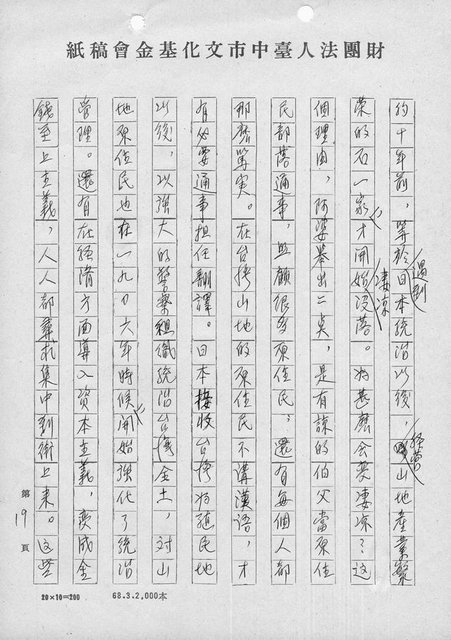 財團法人臺中市文化基金會稿紙
約十年前，等於日本統治以後，經營山地產業繁
遇到
榮的石一家才開始沒落。為甚麼會變淒凉？這
淒凉
個理由，阿婆舉出二点，是有諒的伯父當原住
民部落通事，照顧很多原住民，還有每個人都
那麼篤实。在台湾山地的原住民不講漢語，才
有必要通事担任翻譯。日本接收台湾為殖民地
以後，以強大的警察組織統治台湾全土，対山
地原住民也在一九〇六年時候開始強化了統治
管理。還有在經濟方面導入資本主義，変成金
錢至上主義，人人都尋求集中到街上來。這些
第19頁
20×10=200
68.3.2,000本